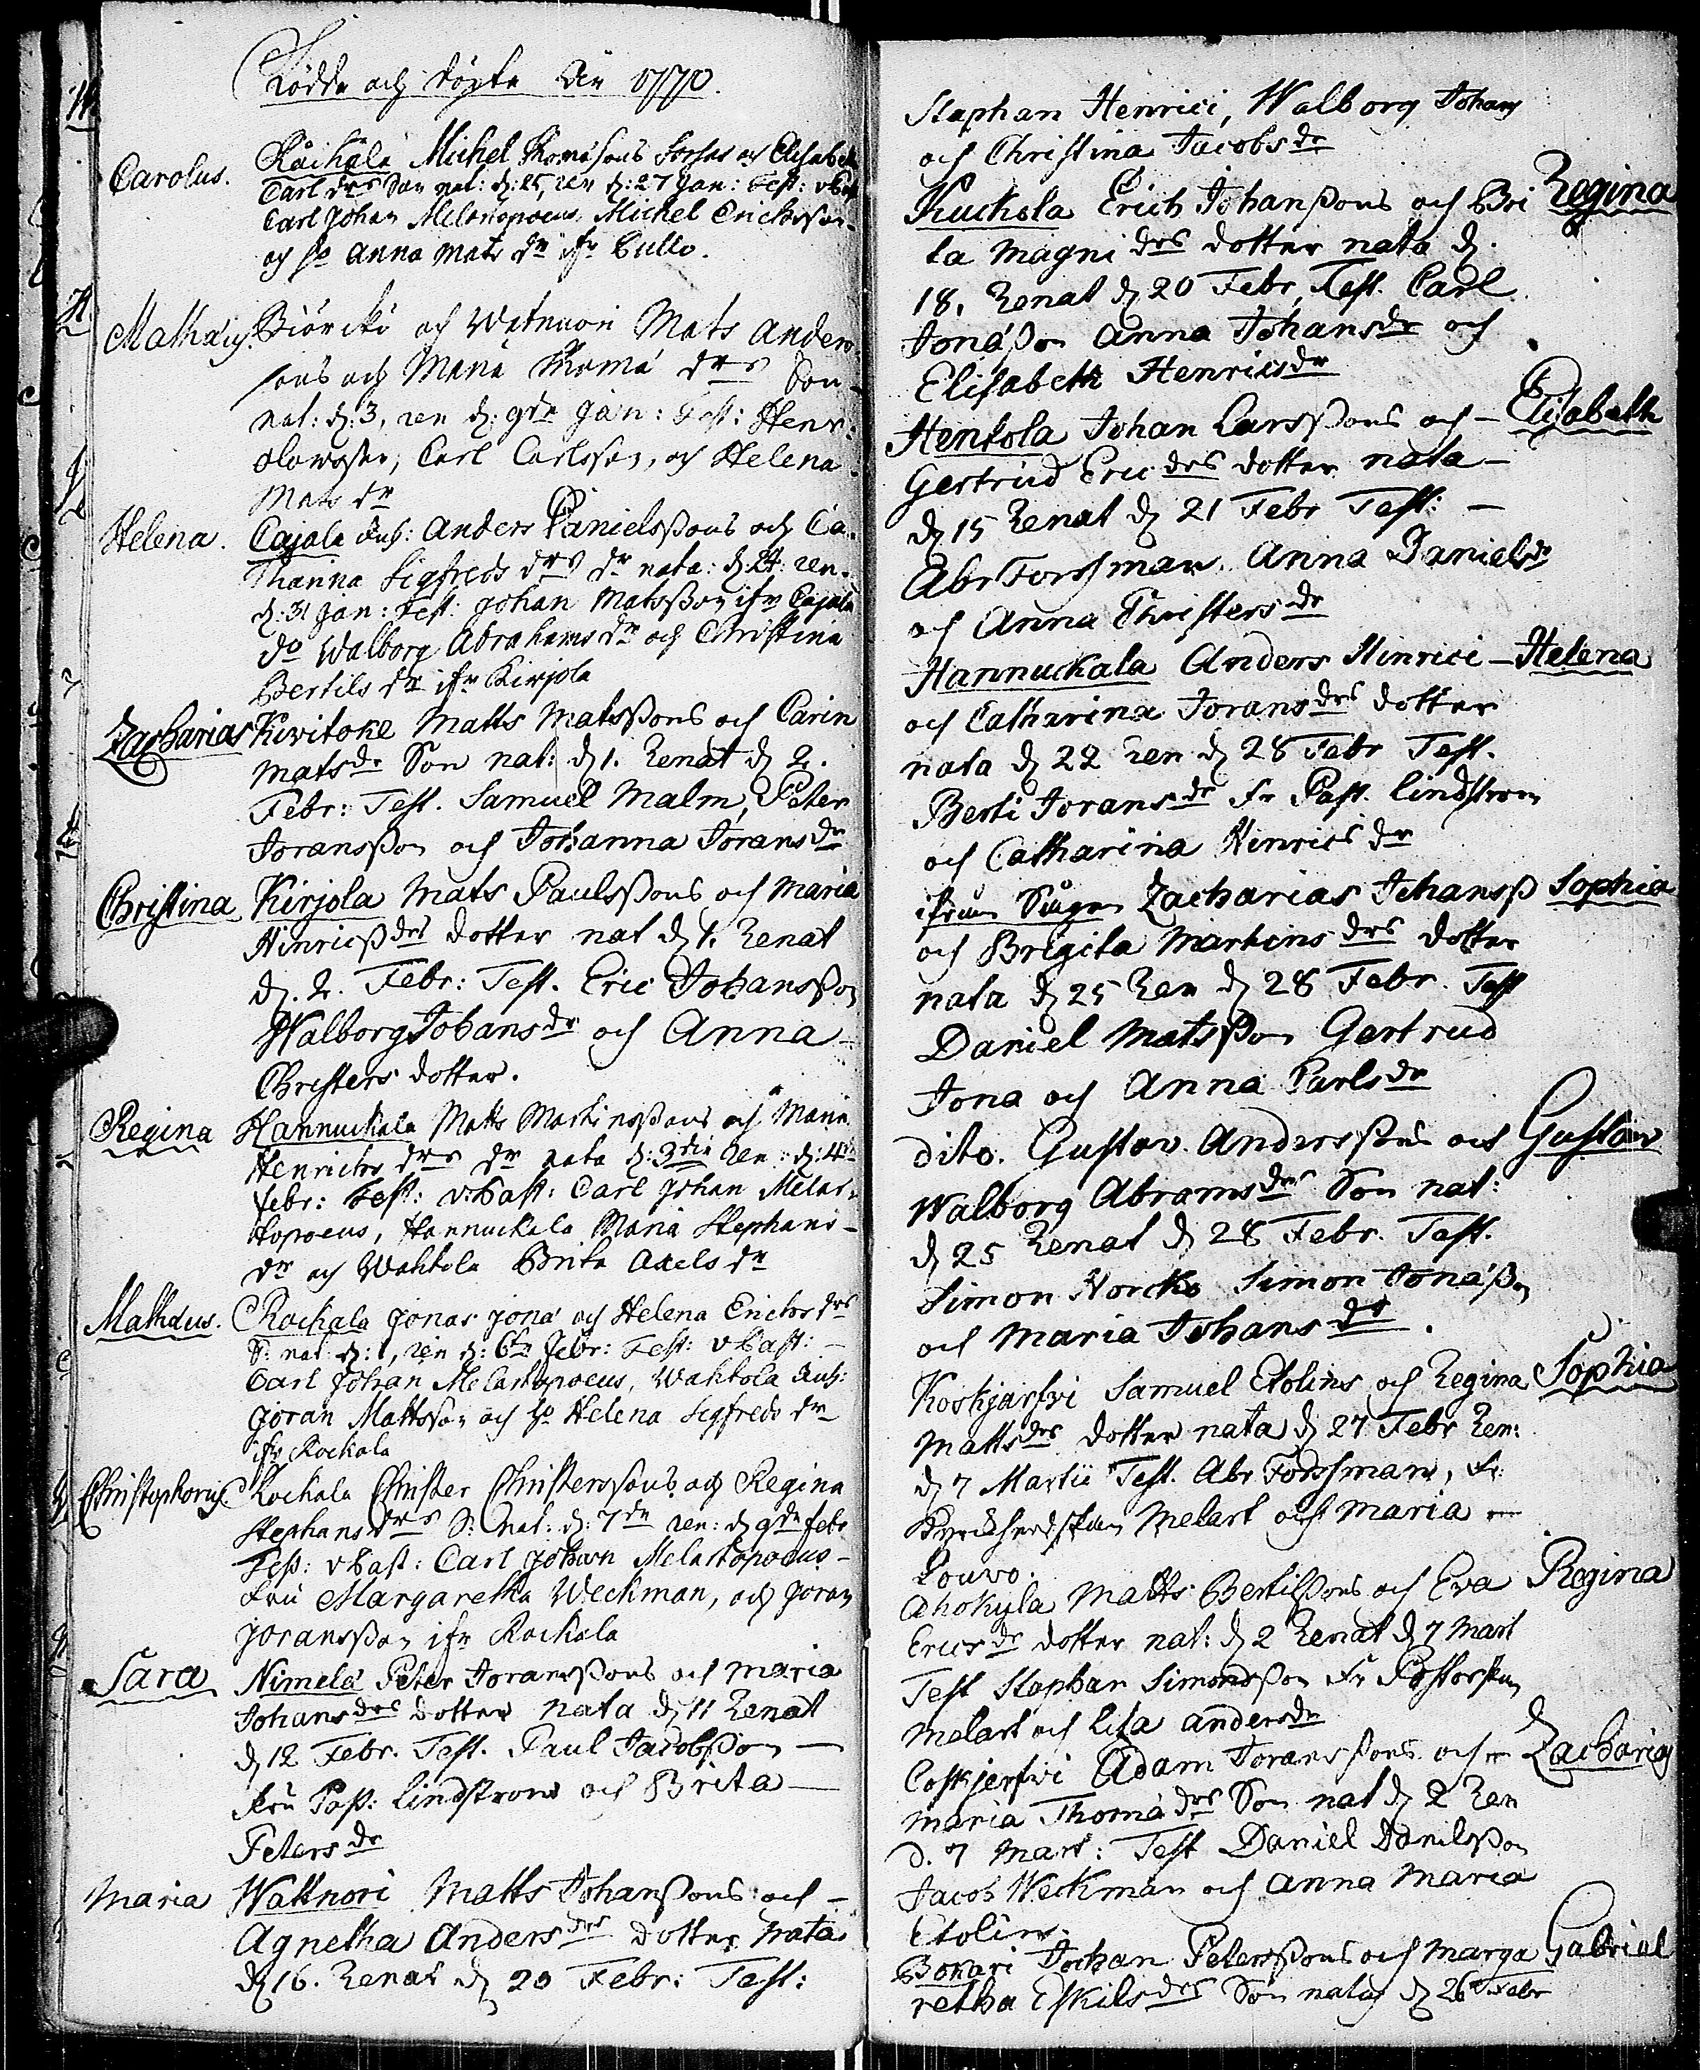 Födde och döpte År 1770.
Carolus. Råckala Michel Thomæsons Sorsas och Elisabeth
Carl drs Son nat: d: 25, ren d: 27 Jan: Test: vPast
Carl Johan Melartopoeus, Michel Ericksson
och ho Anna Mats dr ifr Cullo.
Mathæus. Biörckö och Watnuori Mats Anders
sons och Maria Thomæ drs Son
nat: d: 3, ren d: 9de Jan: Test: Henr:
Olowsson, Carl Carlsson, och Helena
Mats dr
Helena. Cajala Anders Danielssons och Ca
tharina Sigfreds drs dr nata: d: 24: ren
d: 31 Jan: Test: Johan Matsson ifr Cajala
do Walborg Abrahams dr och Christina
Bertils dr ifr Kirjola
Zacharias Kivitoke Matts Matssons och Carin
Mats dr Son nat: d 1. Renat d 2.
Febr: Test. Samuel Malm, Peter
Joransson och Johanna Jorans dr
Christina Kirjola Mats Paulssons och Maria
Hinrics drs dotter nat d 1. Renat
d. 2. Febr: Test. Eric Johansson
Walborg Johans dr och Anna
Christers dotter.
Regina Hannuckala Matts Martinssons och Maria
Henrichs drs dr nata d: 3die Ren: d: 4
febr: Test: vPast: Carl Johan Melar-
topoeus, Hannuckala Maria Stephans-
dr och Wahtola Brita Axels dr
Mathæus. Rockala Jonas Jonæ och Helena Erichs drs
S: nat: d: 1, ren d: 6te Febr: Test: vPast:
Carl Johan Melartopoeus, Wahtola
Joran Mattsson och ho Helena Sigfreds dr
ifr Rockala
Christophorus Rockala Christer Christerssons och Regina
Stephans drs S: nat: d: 7de ren: d 9de febr
Test: vPast: Carl Johan Melartopoeus
Fru Margaretha Weckman, och Joran
Joransson ifr Rockala
Sara Nimelä Peter Joranssons och Maria
Johans drs dotter nata d 11 Renat
d 12 Febr. Test. Paul Jacobsson
Fru Past: Lindstrom och Brita
Peters dr
Maria Wattnori Matts Johanssons och
Agnetha Anders drs dotter nata
d 16. Renat d 20 Febr: Test:
Staphan Henrici, Walborg Johans
och Christina Jacobs dr
Kuckola Erich Johanssons och Bri Regina
ta Magni drs dotter nata d.
18. Renat d 20 Febr. Test. Carl
Jonæson Anna Johans dr och
Elisabeth Henrics dr
Hentola Johan Larssons och Elisabeth
Gertrud Eric drs dotter nata
d 15 Renat d 21 Febr Test:
Abr Forssman. Anna Daniels dr
och Anna Christers dr
Hannuckala Anders Hinrici Helena
och Catharina Jorans drs dotter
nata d 22 Ren d 28 Febr Test.
Berti Jorans dr Fr Past. Lindstrom
och Catharina Hinrics dr
ifrån Zacharias Johanss Sophia
och Brigita Martens drs dotter
nata d 25 Ren d 28 Febr. Test
Daniel Matsson Gertrud
Jona och Anna Carls dr
dito. Gustav Anderssons och Gustav
Walborg Abrams drs Son nat:
d 25 Renat d 28 Febr. Test.
Simon Norcko Simon Jonæson
och Maria Johans dr.
Koskjerfvi Samuel Etolins och Regina Sophia
Matts drs dotter nata d 27 Febr Ren:
d 7 Martii Test. Abr Forssman, Fr
Kyrckherdskan Melart och Maria
Pouvo.
Ahokyla Matts Bertilssons och Eva Regina
Erics dr dotter nat: d 2 Renat d 7 Mart
Test Staphan Simonsson Fr Pastorskan
Melart och Lisa Anders dr
Coskjerfvi Adam Joranssons och Zacharias
Maria Thomæ drs Son nat d 2 Ren
d. 7 Mart: Test Daniel Danilsson
Jacob Weckman och Anna Maria
Etolin.
Bokari Johan Peterssons och Marga Gabriel
retha Eskils drs Son natus d 26 Febr